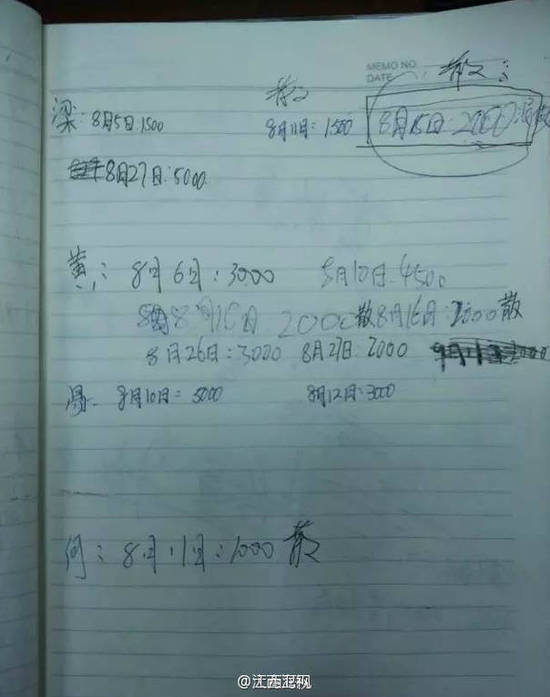 MEMO NO.
DATE
散:
散
梁: 8月5日:1500 8月11日: 1500 8月15日:2000
8月27日:5000
黄: 8月6日:3000 8月10日:4500
8月16日 2000散 8月16日:2000散
8月26日:3000 8月27日:2000
8月10日: 5000 8月12日:3000
何: 8月11日:1000 散